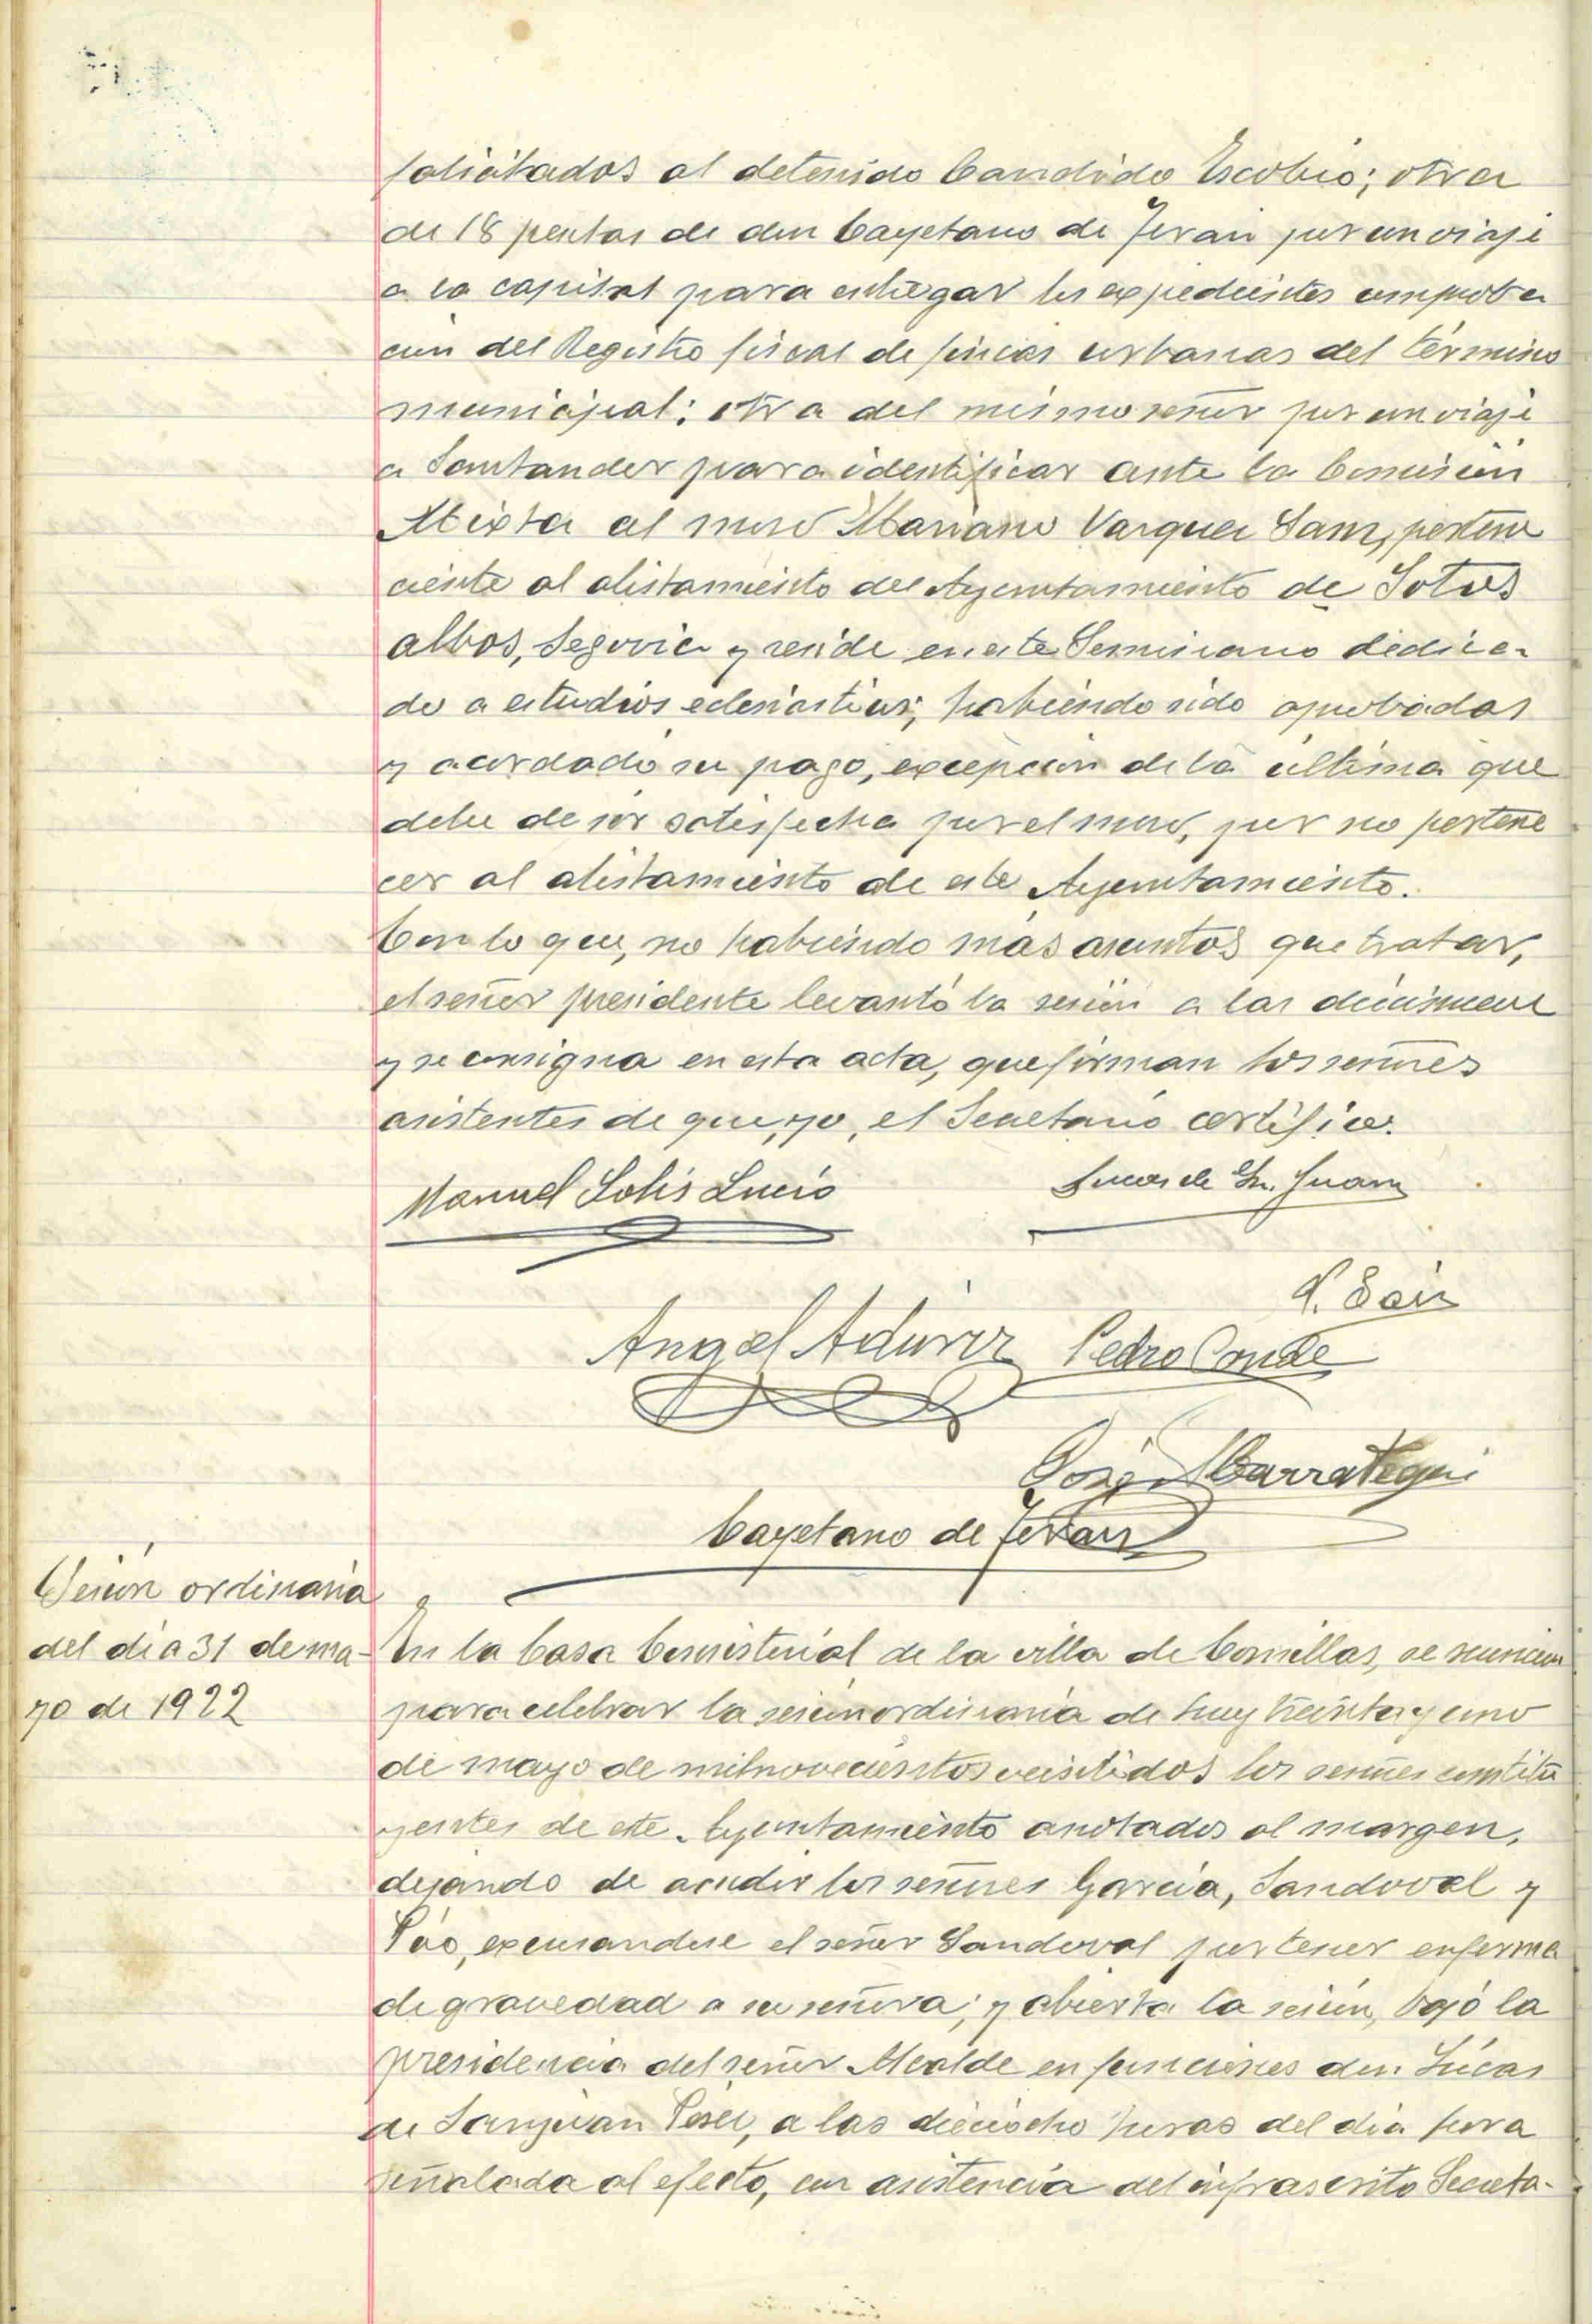 facilitados al detenido Candido Escobio; otra
de 18 pesetas de don Cayetano de Teran por un viaje
a la capital para entregar los expedientes comproba
cion del Registro fiscal de fincas urbanas del término
municipal; otra del mismo señor por un viaje
a Santander para identificar ante la Comisión
Mixta al mozo Mariano Varquer Sanz, pertene
ciente al alistamiento del Ayuntamiento de Sotos
albos, Segovia y reside en este Seminario dedica-
do a estudios eclesiasticos; habiendo sido aprobadas
y acordado su pago, excepción de la ultima que
debe de ser satisfecha por el mozo, por no pertene
cer al alistamiento de este Ayuntamiento.
Con lo que, no habiendo más asuntos que tratar,
el señor presidente levantó la sesión a las diecinueve
y se consigna en esta acta, que firman los señores
asistentes de que, yo, el Secretario certifico.
Manuel Solis Lucio
Lucas de Sn. Juan
V. Sain
Angel Aduriz Pedro Conde
José Ibarrategui
Cayetano de Teran
Sesión ordinaria
del dia 31 de ma-
yo de 1922
En la Casa Consistorial de la villa de Comillas, se reunieron
para celebrar la sesion ordinaria de hoy treinta y uno
de mayo de mil novecientos veintidos los señores constitu
yentes de este Ayuntamiento anotados al margen,
dejando de acudir los señores Garcia, Sandoval y
Póo, excusandose el señor Sandoval por tener enferma
de gravedad a su señora; y abierta la sesión, bajo la
presidencia del señor Alcalde en funciones don Lúcas
de Sanjuan Perez, a las dieciocho horas del dia hora
señalada al efecto, con asistencia del infrascrito Secreta-